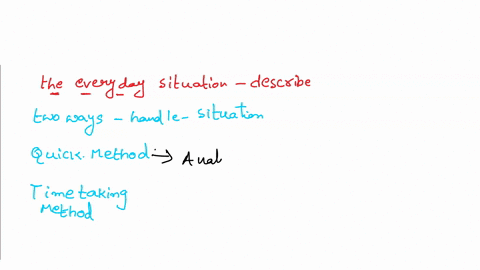 the everyday situation - describe
two ways - handle - situation
Quick Method → Anal
Time taking
Method